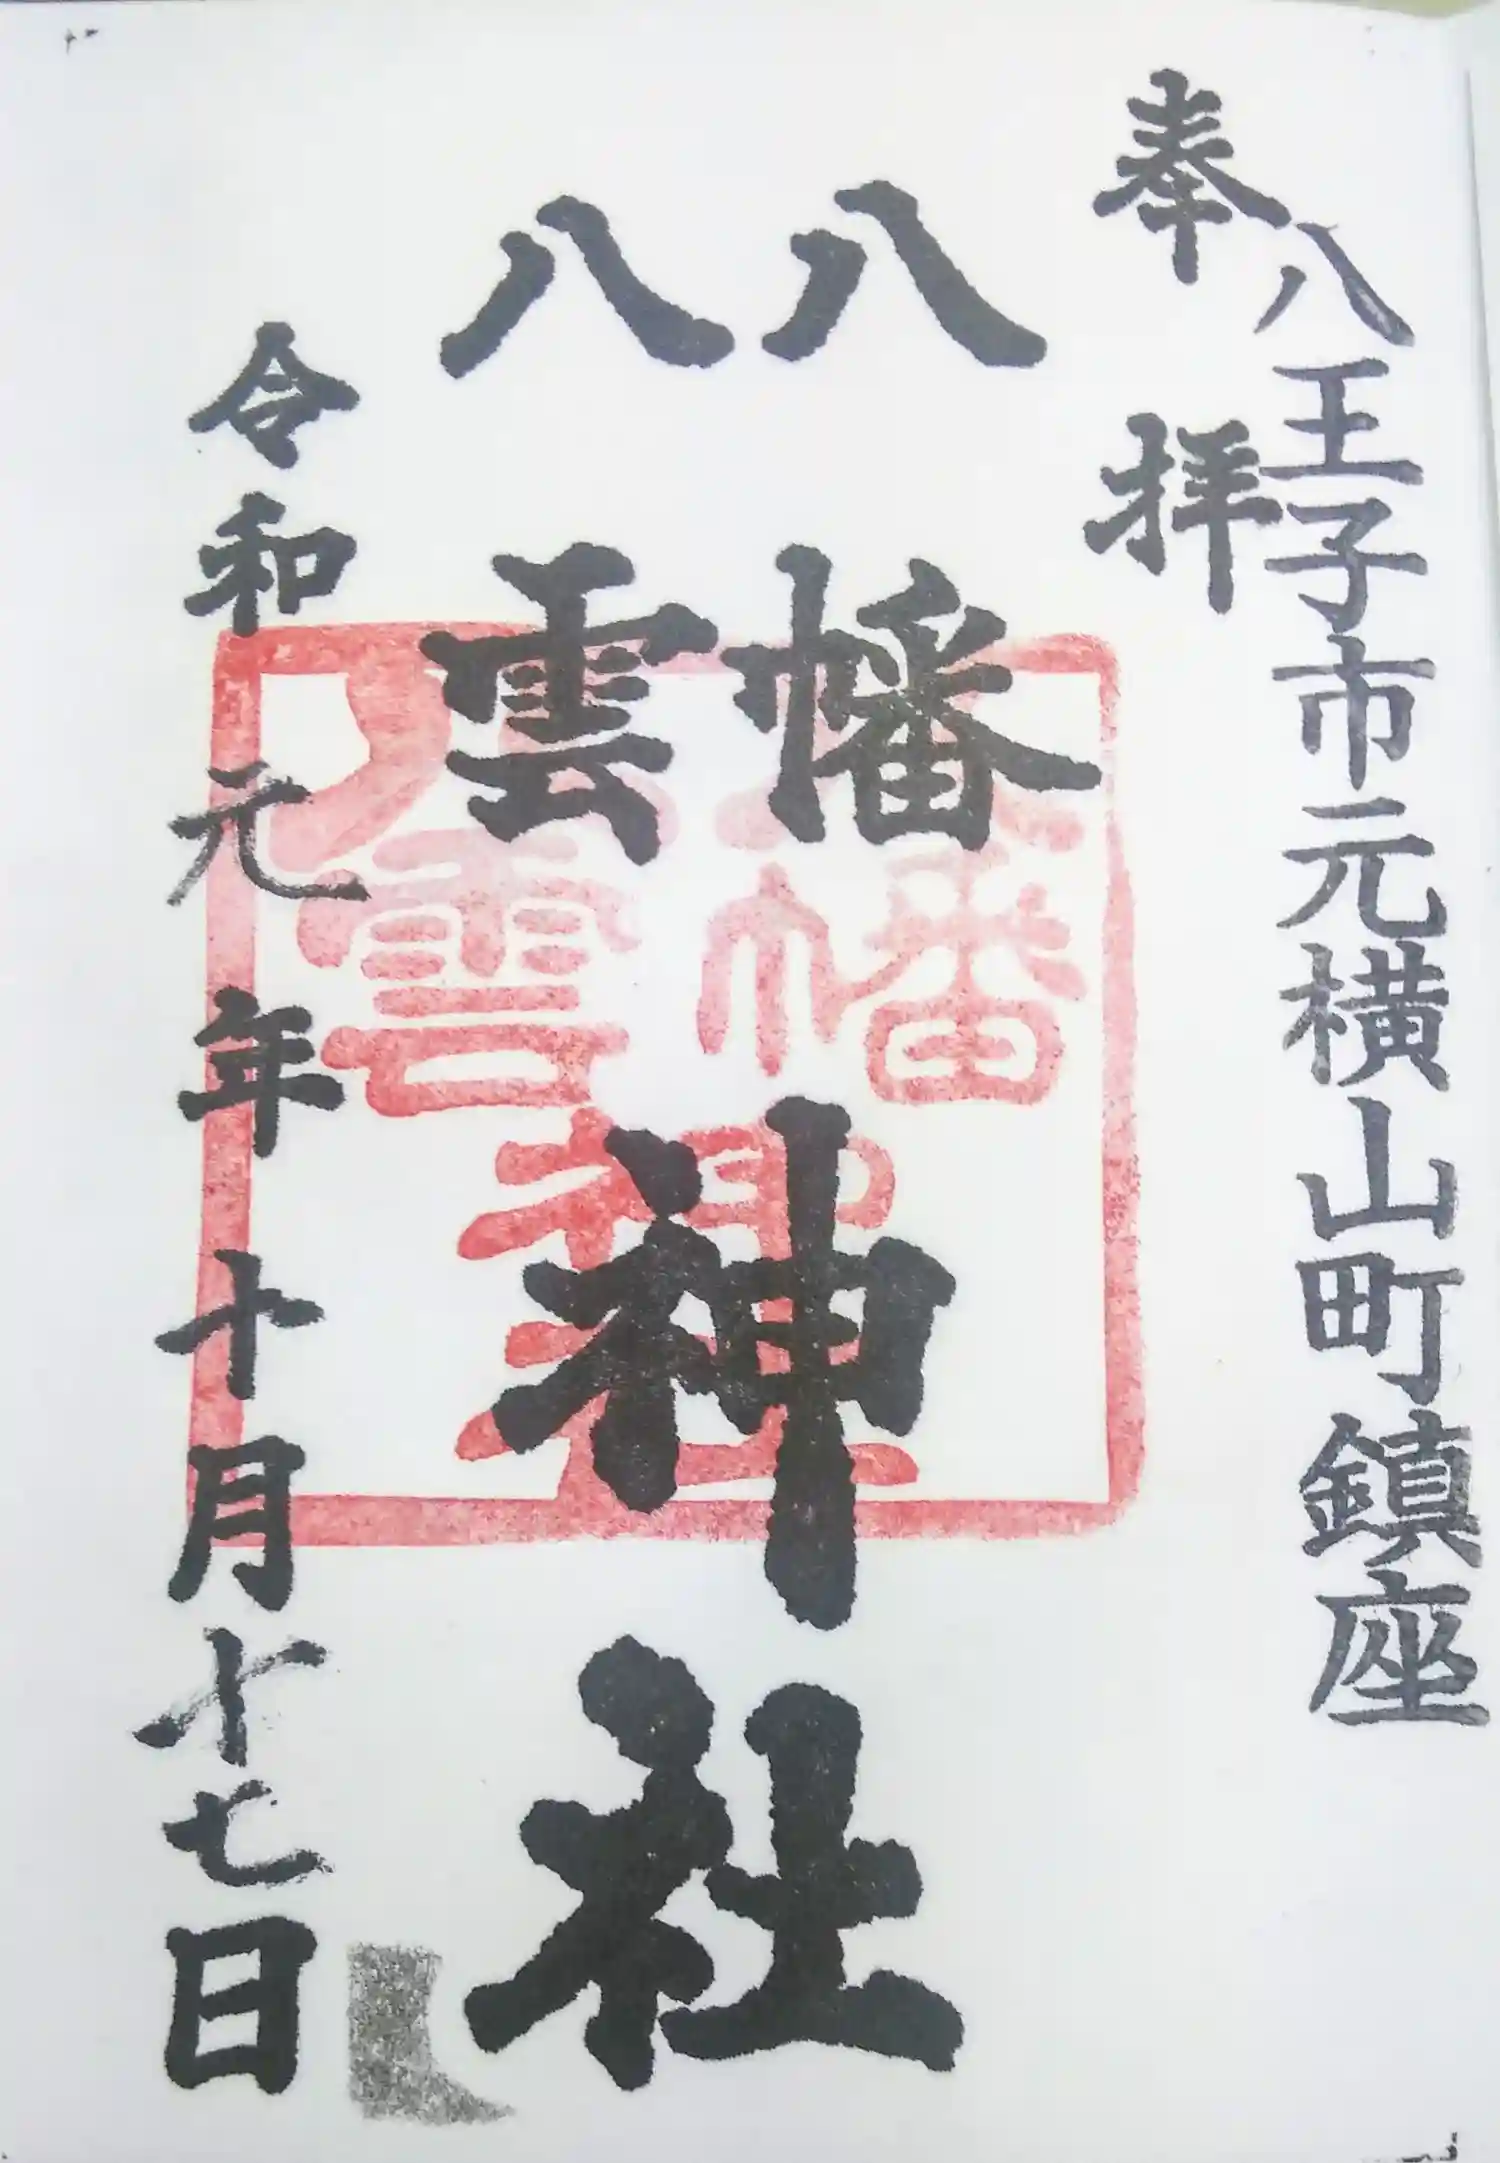 八王子市元横山町鎮座
奉拝
八幡
八雲
神社
令和元年十月十七日
八幡
八雲
神社